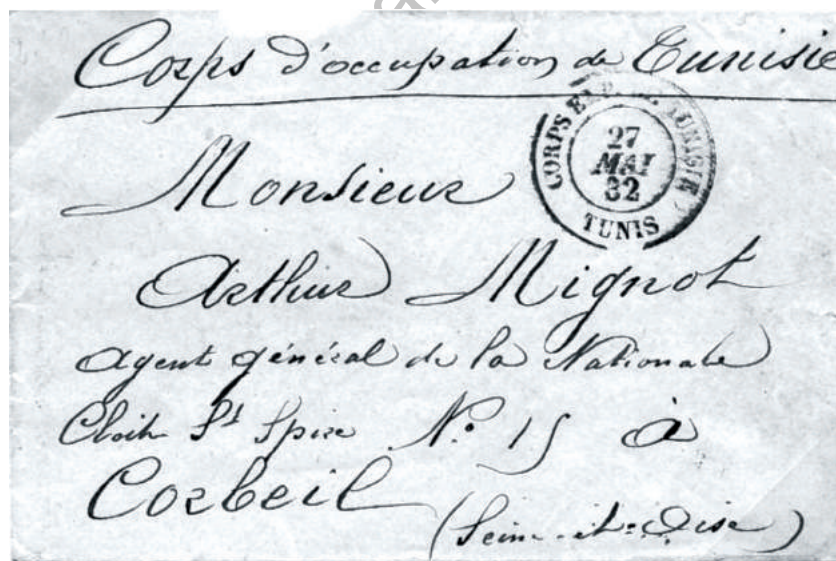 Corps d'occupation de Tunisie
CORPS EXP. TUNISIE
27
MAI
82
TUNIS
Monsieur
Arthur Mignot
Agent général de la Nationale
Cloitre St Spire No 15 à
Corbeil
(Seine-et-Oise)